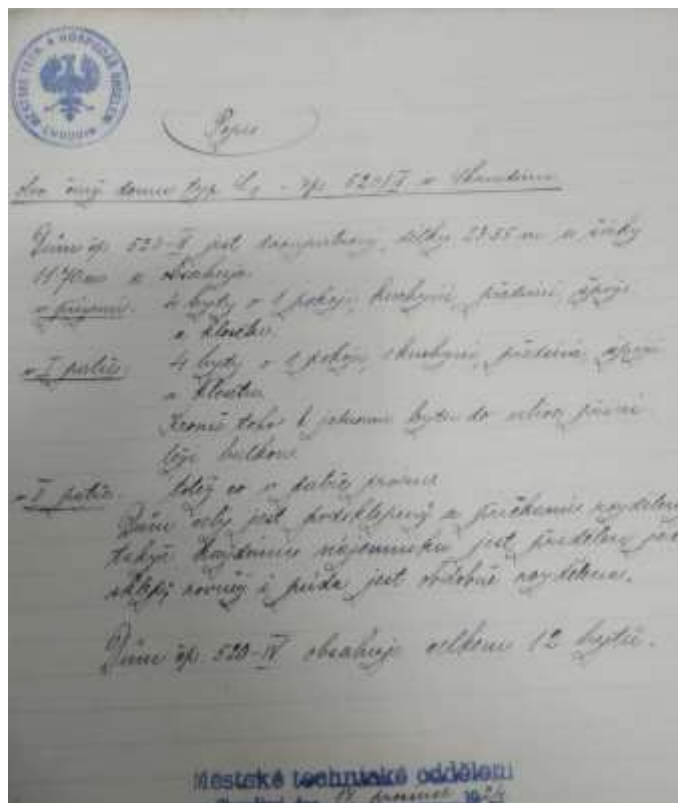 MĚSTSKÉ TECH. A HOSPODÁŘ. ODDĚLEN.
Popis
domu typ L1 - čp. 520/IV v Chrudimi
Dům čp. 520-IV jest dvoupatrový, délky 23.55 m a šířky
11.70 m a obsahuje
v přízemí. 4 byty o 1 pokoji, kuchyni, předsíni, spíži
a klosetu.
v I patře. 4 byty o 1 pokoji, kuchyni, předsíni, spíži
a klosetu
Kromě toho k jednomu bytu do ulice
balkon.
v II patře. totéž co v patře prvém
Dům celý jest podsklepený a příčkami rozdělen
takže každému nájemníku jest přidělen
sklep; rovněž i půda jest obdobně rozdělena.
Dům čp. 520-IV obsahuje celkem 12 bytů.
Městské technické oddělení
18. prosince 1924